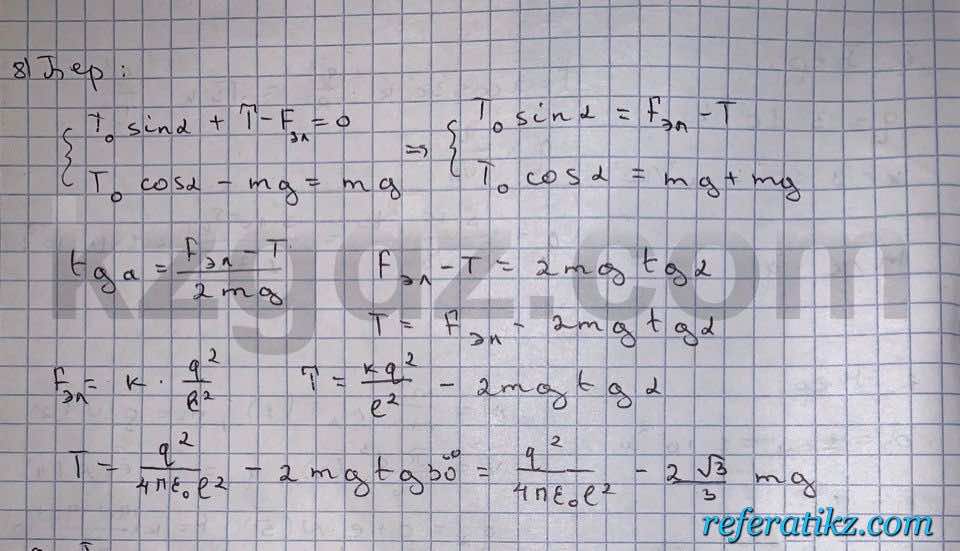 8) Бер:
{ T₀ sinα + T − Fэл = 0 ⇒ { T₀ sinα = Fэл − T
{ T₀ cosα − mg = mg { T₀ cosα = mg + mg
tg α = (Fэл − T)/(2mg) Fэл − T = 2mg tgα
T = Fэл − 2mg tgα
Fэл = k · q²/ℓ² T = kq²/ℓ² − 2mg tgα
T = q²/(4πε₀ℓ²) − 2mg tg30° = q²/(4πε₀ℓ²) − 2 √3/3 mg
kzgdz.com
referatikz.com